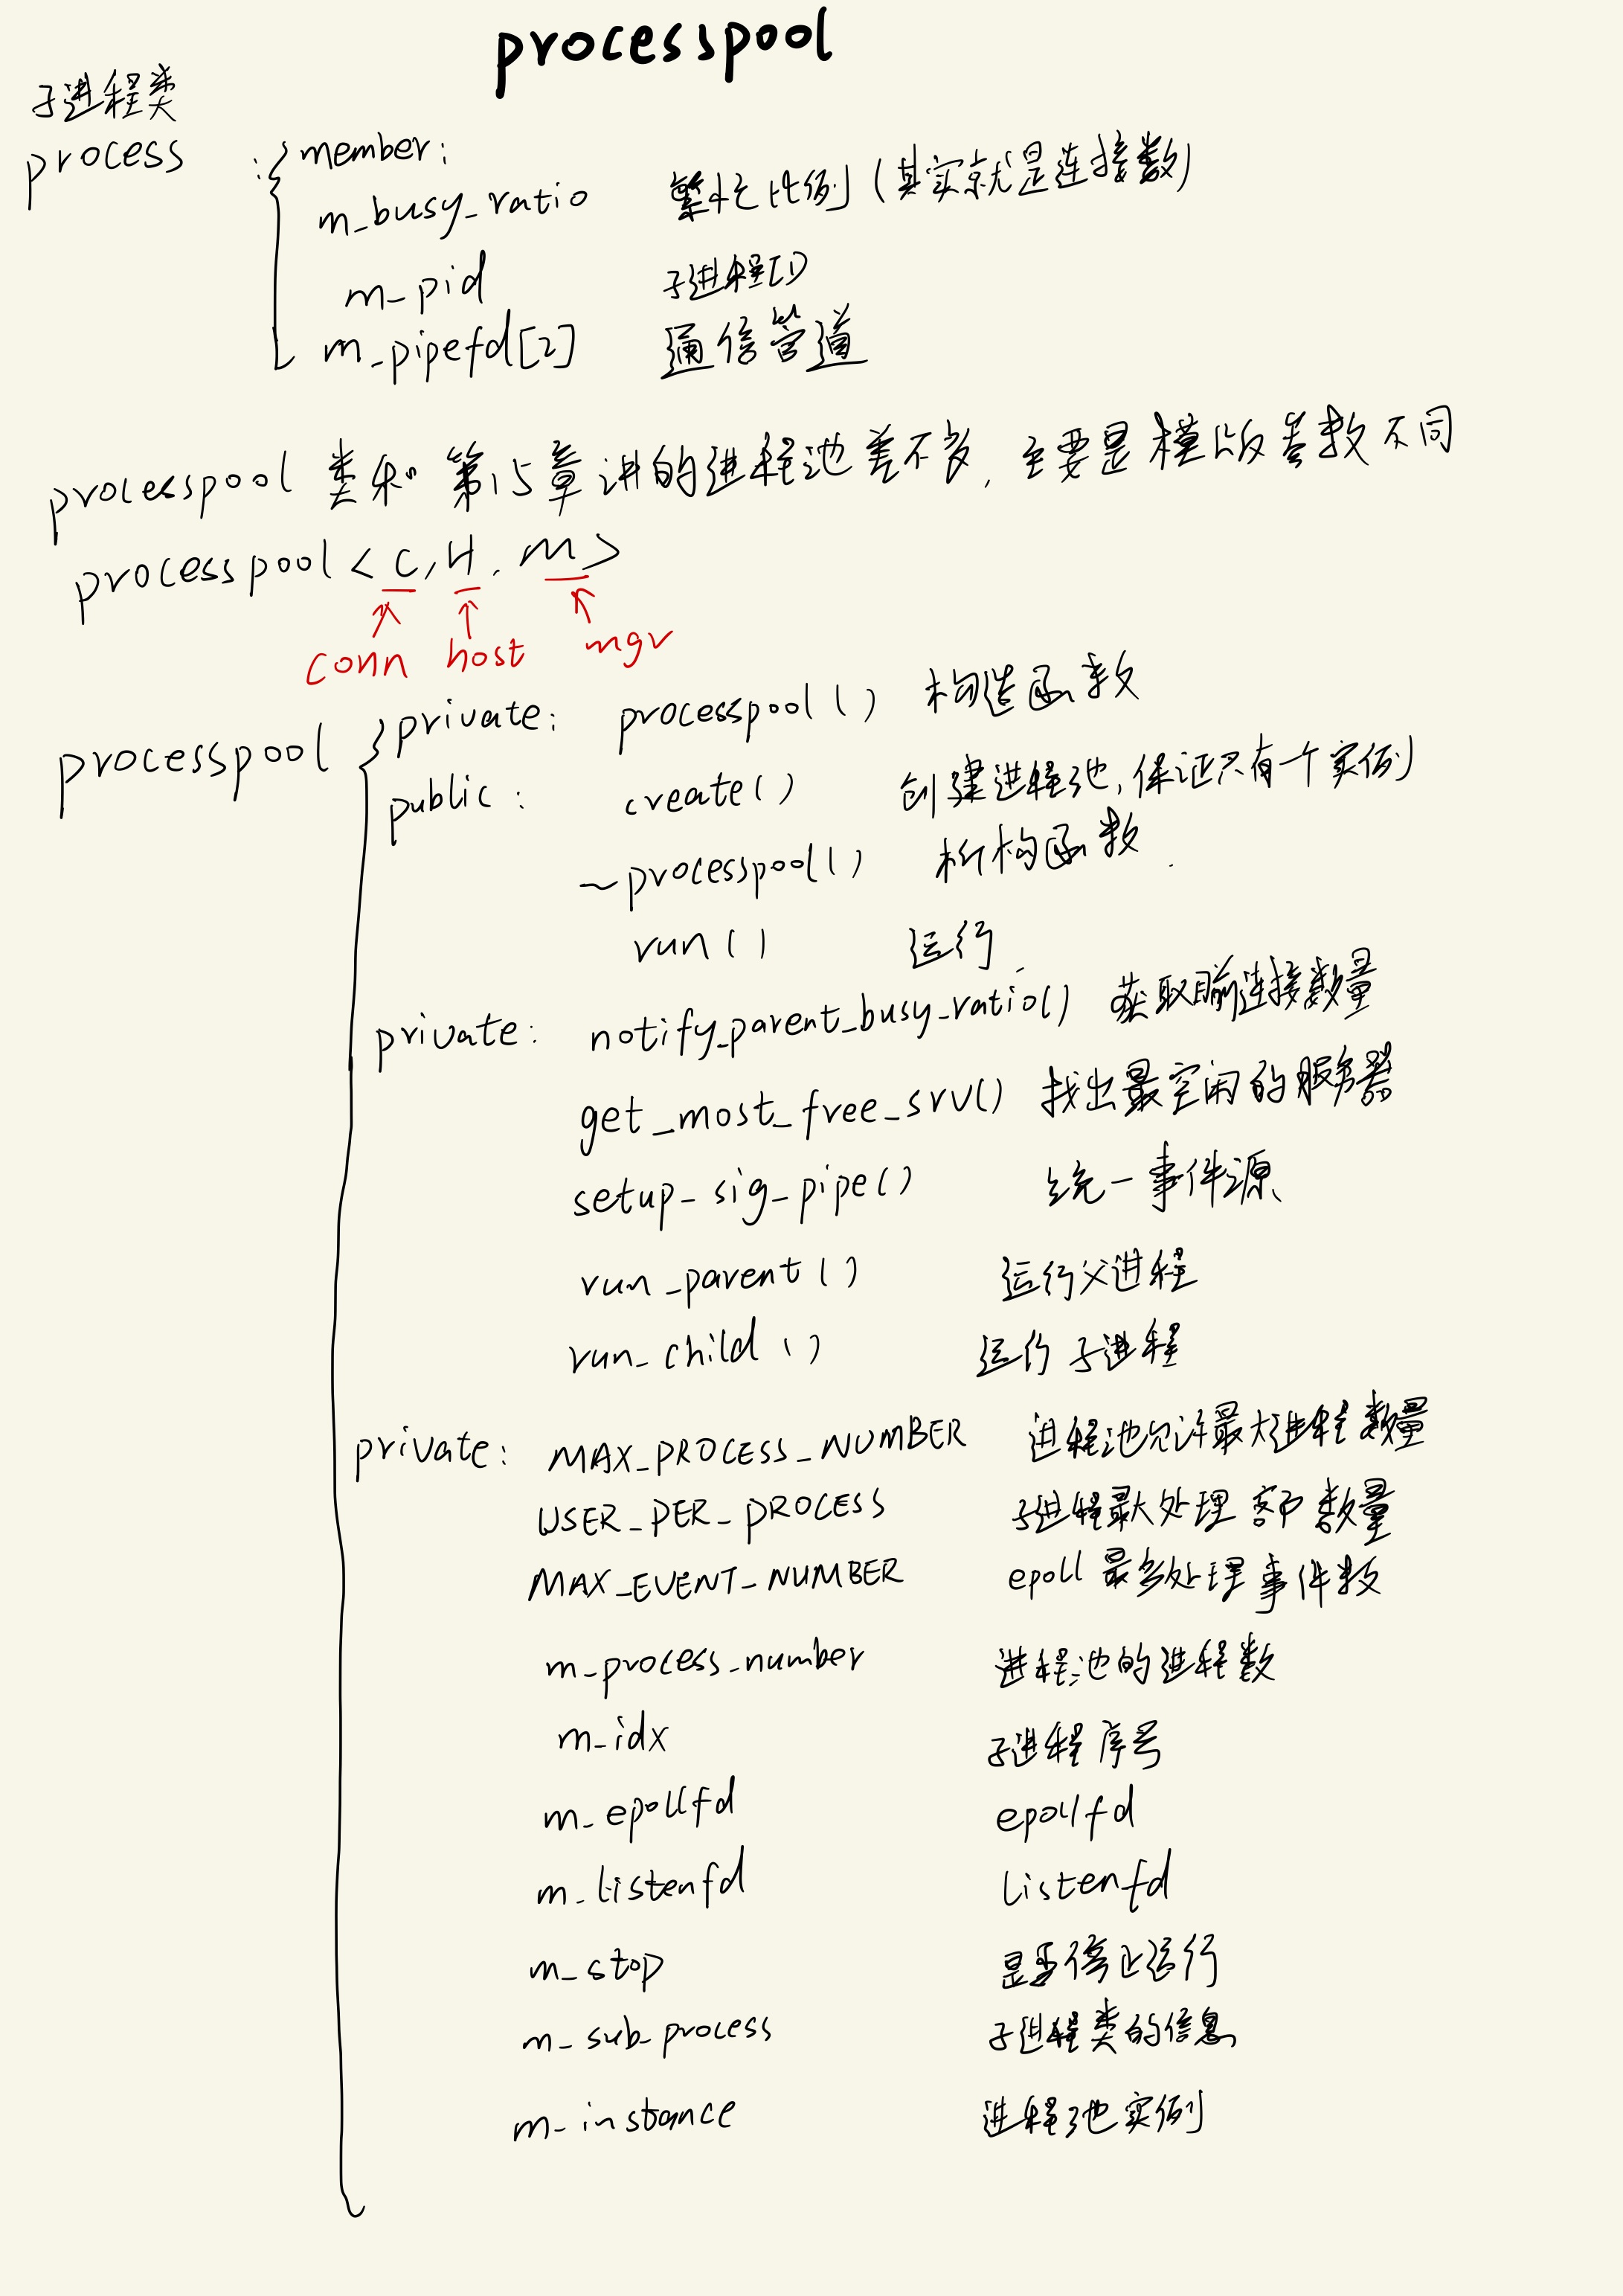 processpool
子进程类
process : member:
m_busy_ratio 繁忙比例(其实就是连接数)
m_pid 子进程ID
m_pipefd[2] 通信管道
processpool 类和 第15章讲的进程池差不多, 主要是模版参数不同
processpool<C,H,M>
conn host mgr
processpool private: processpool() 构造函数
public: create() 创建进程池,保证只有一个实例
~processpool() 析构函数.
run() 运行
private: notify_parent_busy_ratio() 获取目前连接数量
get_most_free_srv() 找出最空闲的服务器
setup_sig_pipe() 统一事件源
run_parent() 运行父进程
run_child() 运行子进程
private: MAX_PROCESS_NUMBER 进程池允许最大进程数量
USER_PER_PROCESS 子进程最大处理客户数量
MAX_EVENT_NUMBER epoll最多处理事件数
m_process_number 进程池的进程数
m_idx 子进程序号
m_epollfd epollfd
m_listenfd listenfd
m_stop 是否停止运行
m_sub_process 子进程类的信息
m_instance 进程池实例